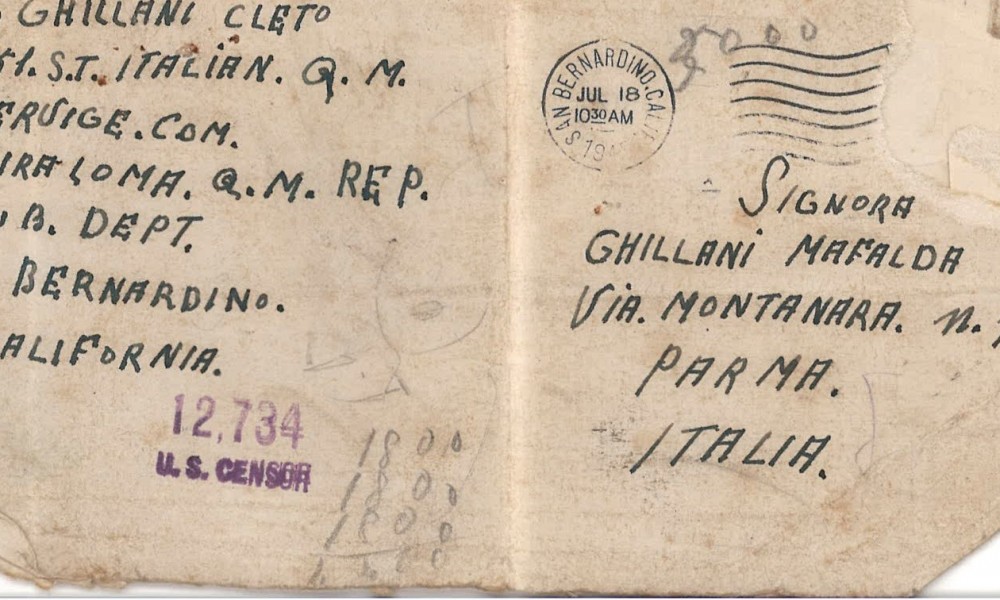 GHILLANI CLETO
S.T. ITALIAN. Q. M.
ERVIGE. COM.
IRA LOMA. Q. M. REP.
B. DEPT.
BERNARDINO.
ALIFORNIA.
12,734
U. S. CENSOR
1800
1800
1800
SAN BERNARDINO, CALIF.
JUL 18
10 30 AM
SIGNORA
GHILLANI MAFALDA
VIA. MONTANARA. n.
PARMA.
ITALIA.